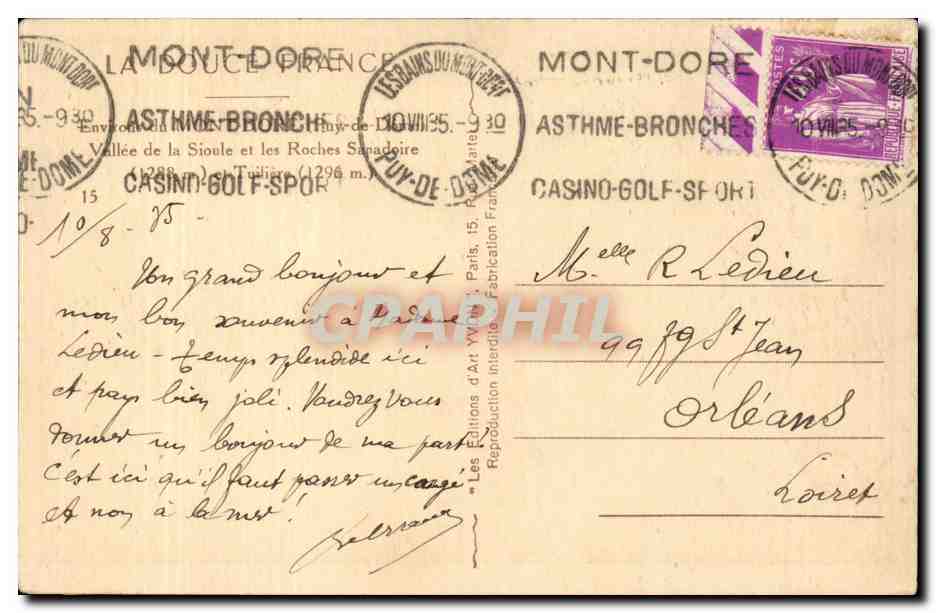 LA DOUCE FRANCE
Environs du MONT-DORE (Puy-de-Dôme)
Vallée de la Sioule et les Roches Sanadoire
(1288 m.) et Tuilière (1296 m.)
15
MONT-DORE
ASTHME-BRONCHES
CASINO-GOLF-SPORT
LES BAINS DU MONT-DORE
10 VIII 35.-9 30
PUY-DE-DOME
MONT-DORE
ASTHME-BRONCHES
CASINO-GOLF-SPORT
LES BAINS DU MONT-DORE
10 VIII 35.-9 30
PUY-DE-DOME
POSTES
10/8-35-
Un grand bonjour et
mon bon souvenir à Madame
Ledieu - temps splendide ici
et pays bien joli. Voudrez vous
donner un bonjour de ma part
c'est ici qu'il faut passer un congé
et non à la mer!
"Les Editions d'Art YVON", Paris, 15, Rue Martel
Reproduction interdite Fabrication Française
Melle R Ledieu
99 Fg St Jean
Orléans
Loiret
CPAPHIL